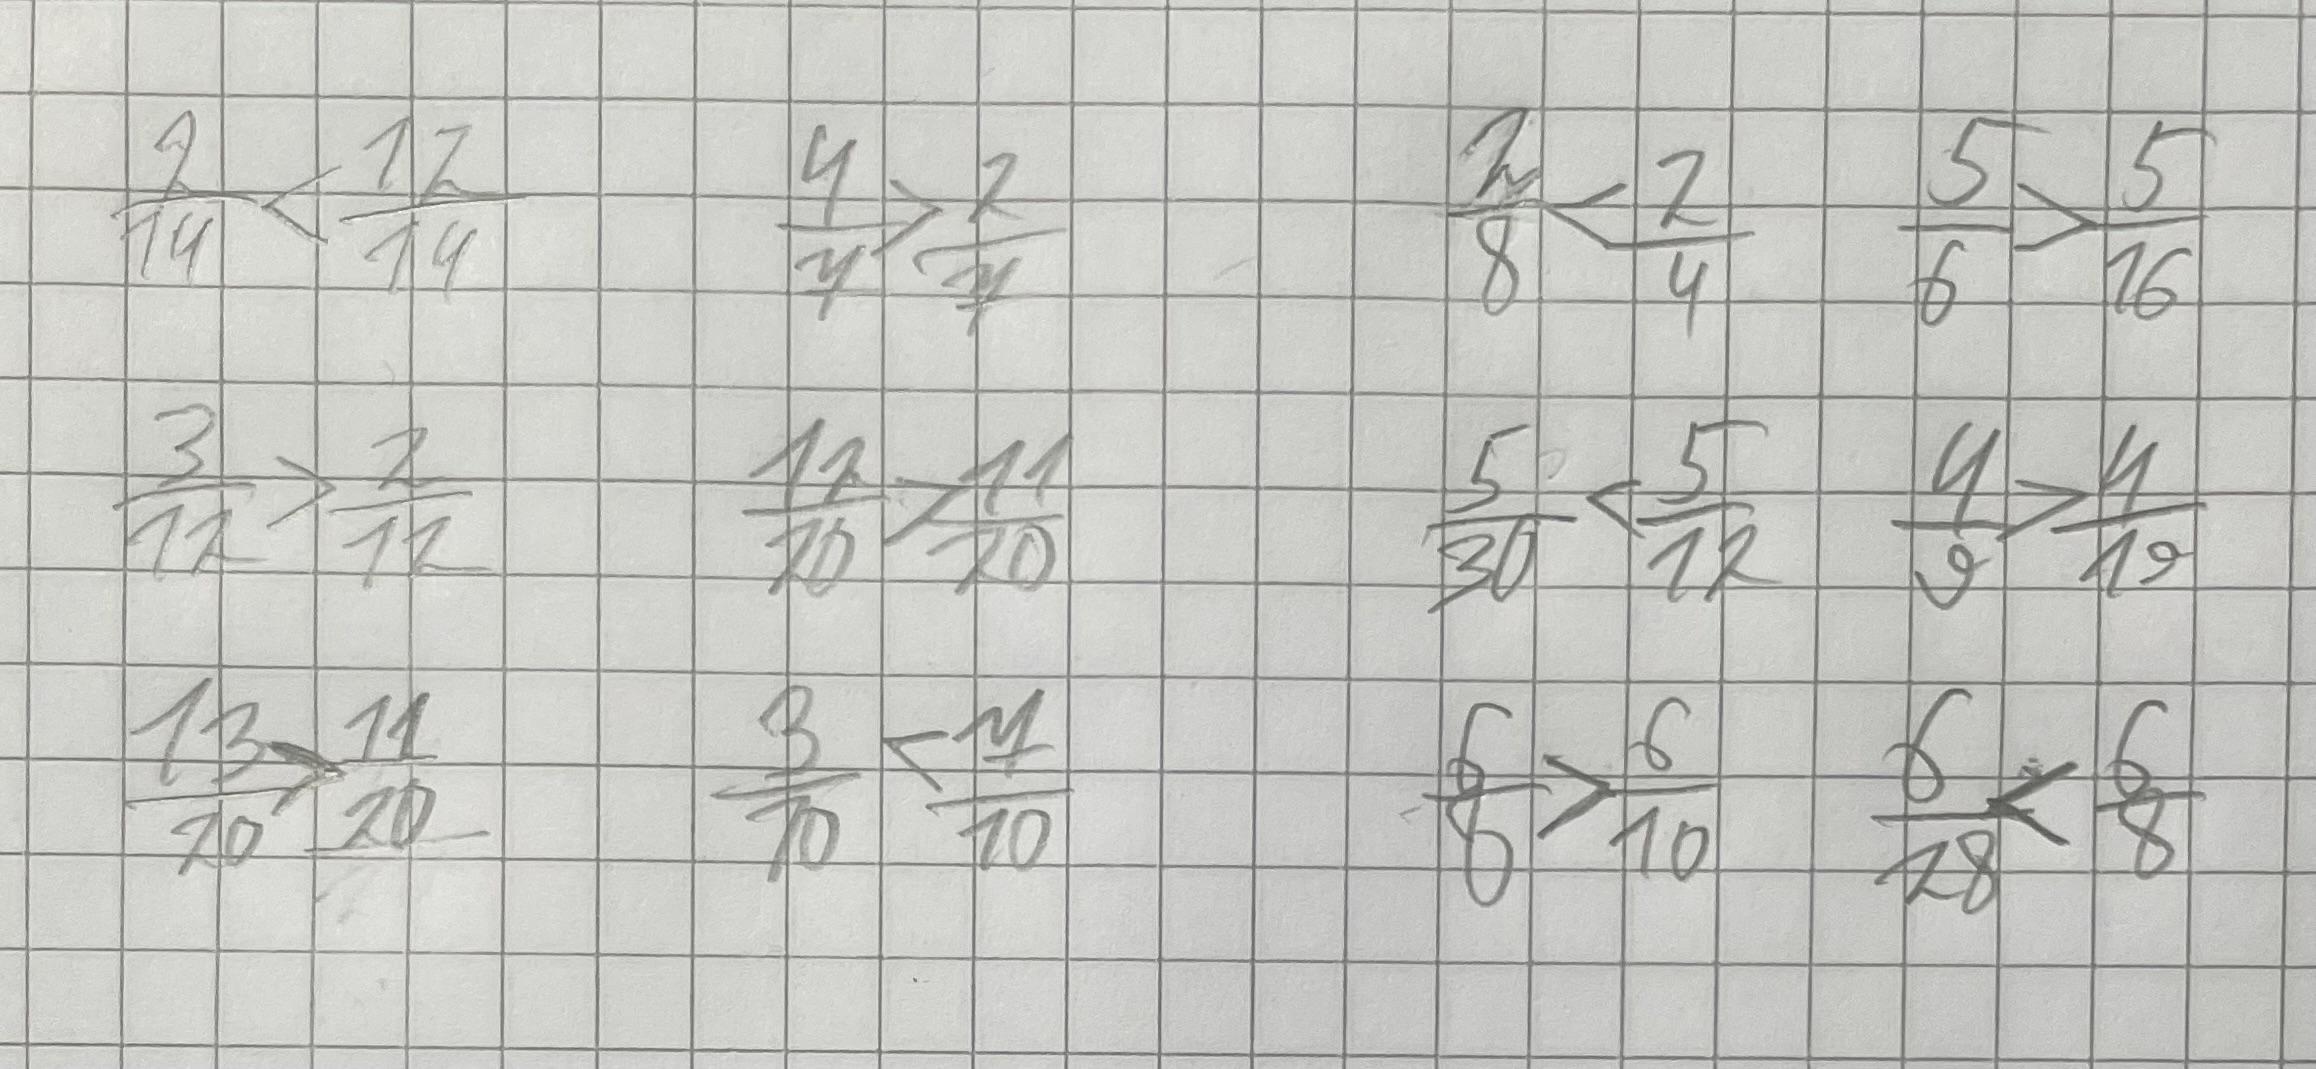 2/14 < 12/14    4/7 > 2/7    2/8 < 2/4    5/6 > 5/16
3/12 > 2/12    12/20 > 11/20    5/30 < 5/12    4/9 > 4/19
13/20 > 11/20    3/10 < 7/10    6/8 > 6/10    6/28 < 6/8